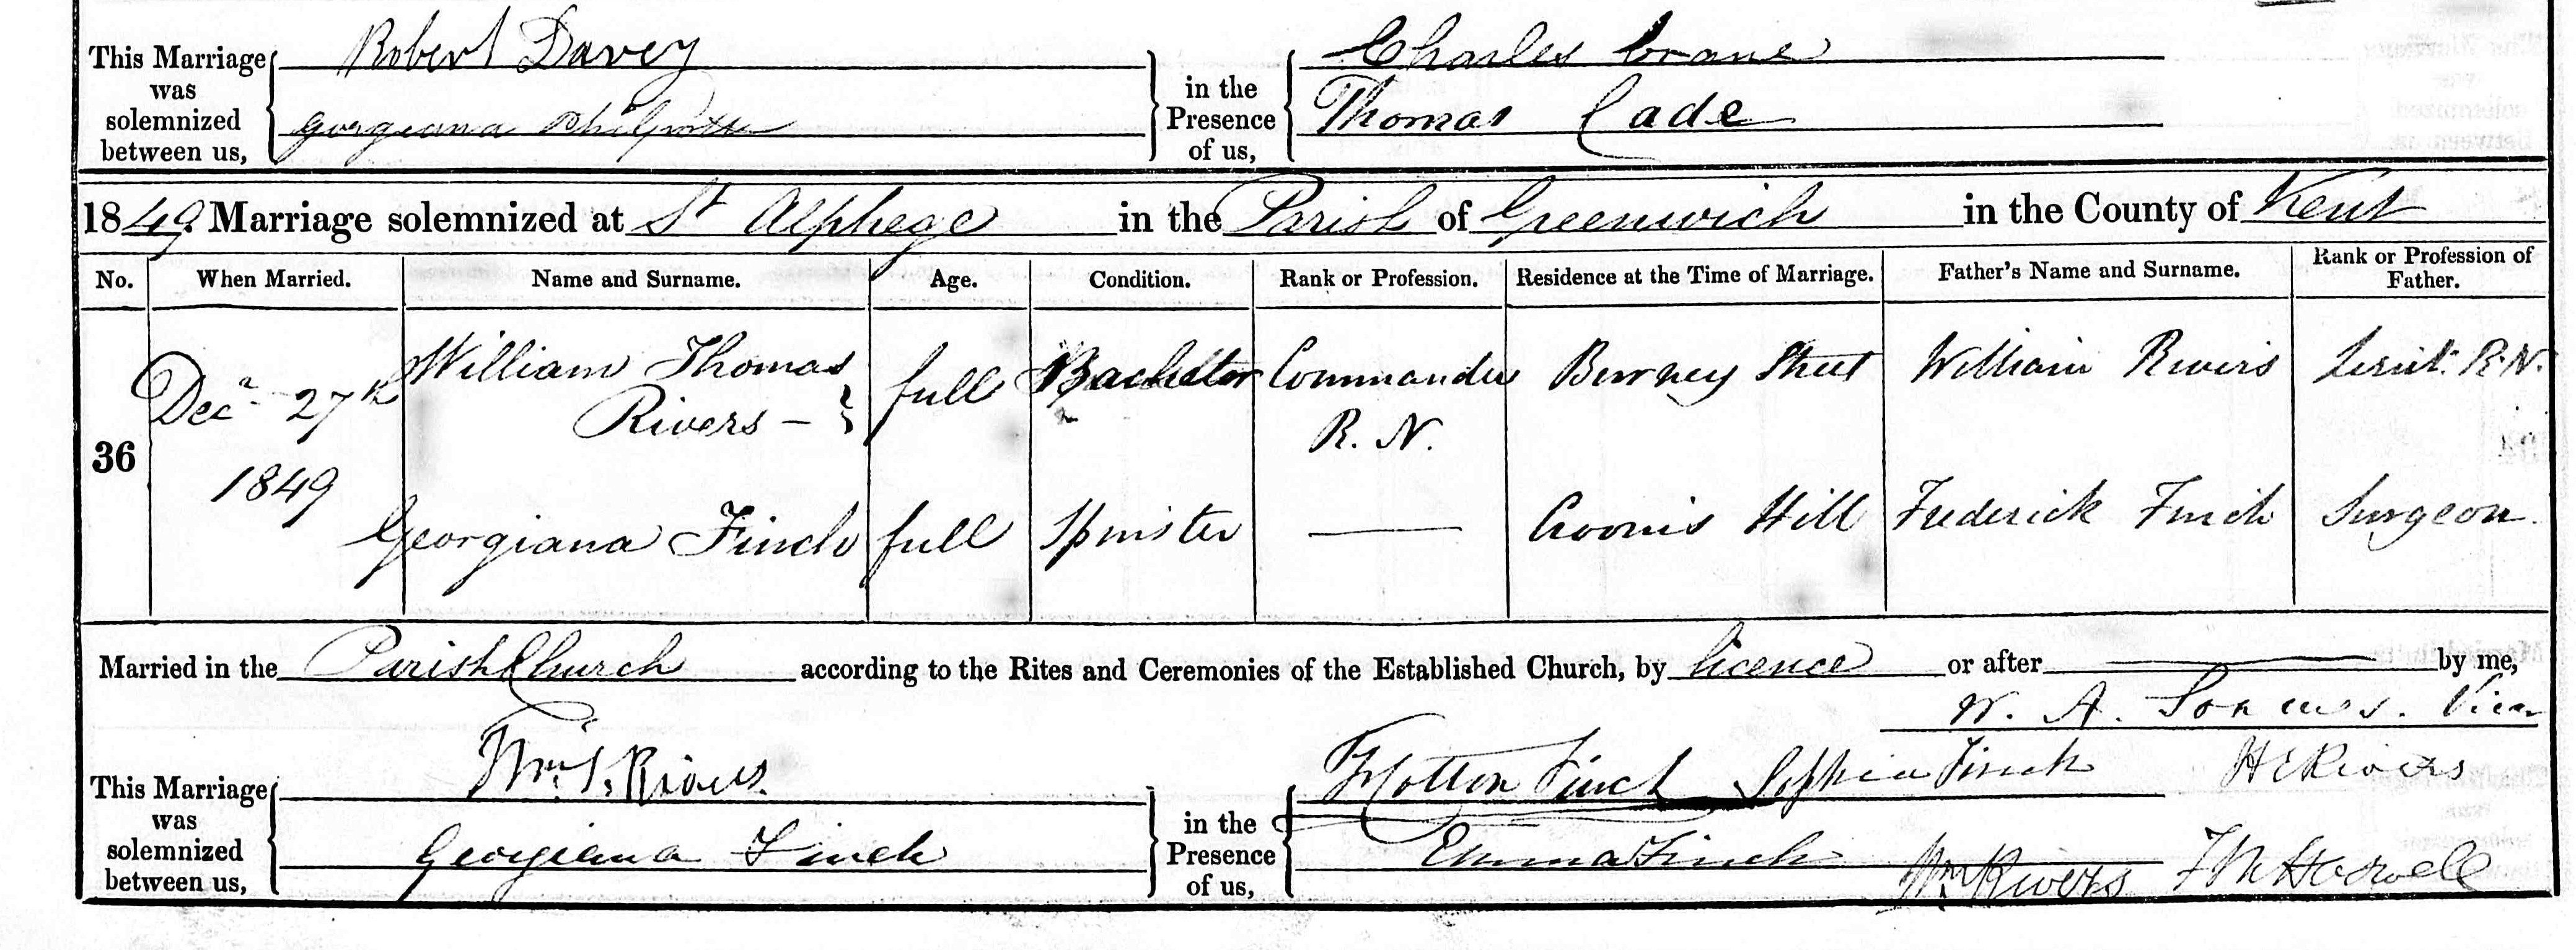 This Marriage was solemnized between us,
Robert Davey
Georgiana
in the Presence of us,
Charles Crane
Thomas Cade
1849. Marriage solemnized at St Alphege in the Parish of Greenwich in the County of Kent
No. When Married. Name and Surname. Age. Condition. Rank or Profession. Residence at the Time of Marriage. Father's Name and Surname. Rank or Profession of Father.
36
Decr 27th 1849
William Thomas Rivers – full Bachelor Commander R. N. Burney Street William Rivers Lieut: R.N.
Georgiana Finch full Spinster — Crooms Hill Frederick Finch Surgeon.
Married in the Parish Church according to the Rites and Ceremonies of the Established Church, by licence or after — by me,
W. A. Soames. Vicar
This Marriage was solemnized between us,
Wm T. Rivers.
Georgiana Finch
in the Presence of us,
Finch Sophia Finch H E Rivers
Emma Finch Wm Rivers